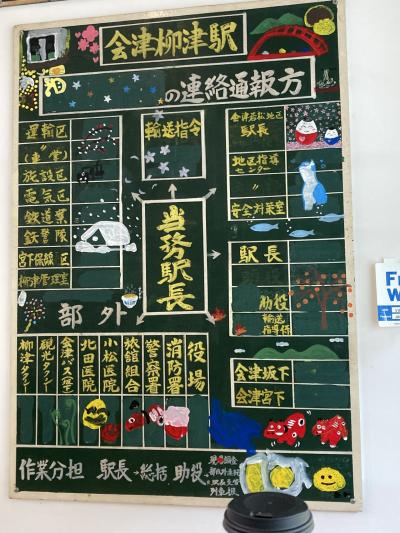 会津柳津駅
の連絡通報方
運輸区
〃
(車掌)
施設区
電気区
鉄道業
鉄警隊
宮下保線区
柳津管理室
輸送指令
会津若松地区
駅長
地区指導
センター
〃
安全対策室
当務駅長
駅長
助役
輸送
指導係
部外
柳津タクシー
観光タクシー
会津バス(営)
北田医院
小松医院
旅館組合
警察署
消防署
役場
会津坂下
会津宮下
作業分担 駅長→総括 助役→